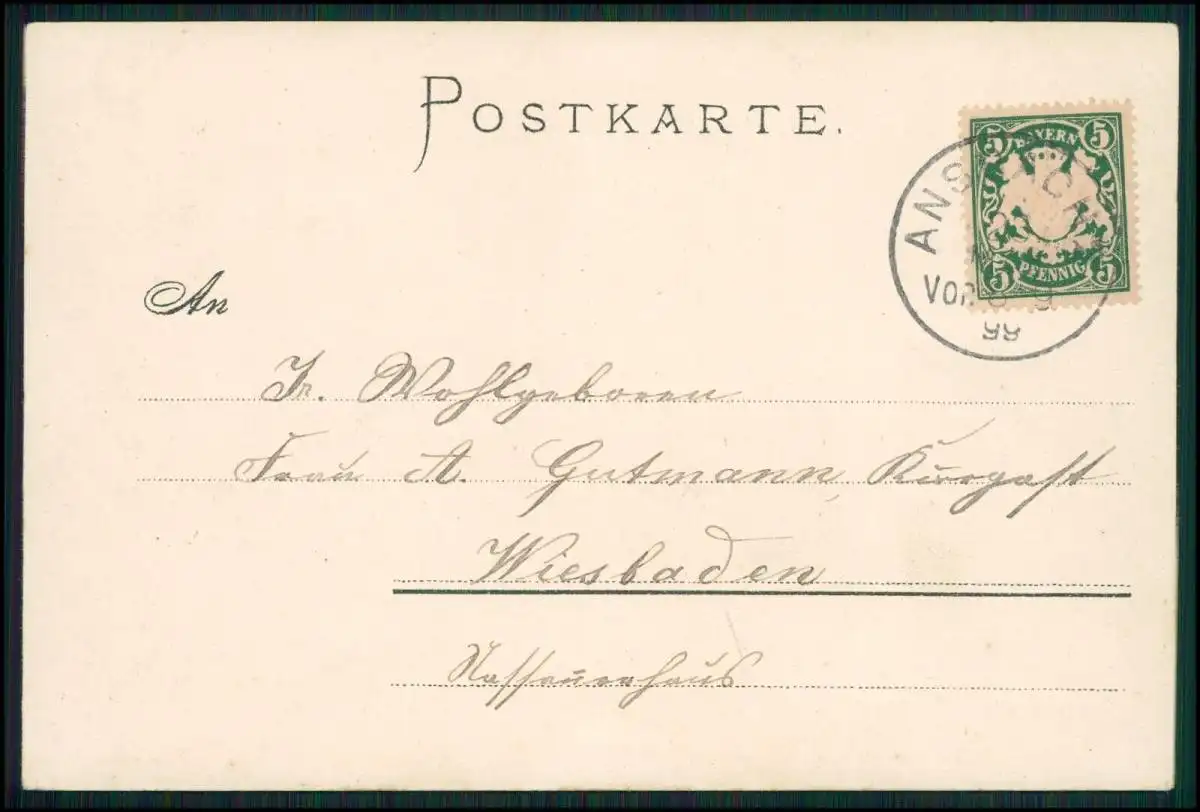 POSTKARTE.
5 BAYERN 5
5 PFENNIG 5
ANSBACH
VOR. 8-9
99
An
Ir. Wohlgeboren
Frau A. Gutmann, Kurgast
Wiesbaden
Nassauerhaus